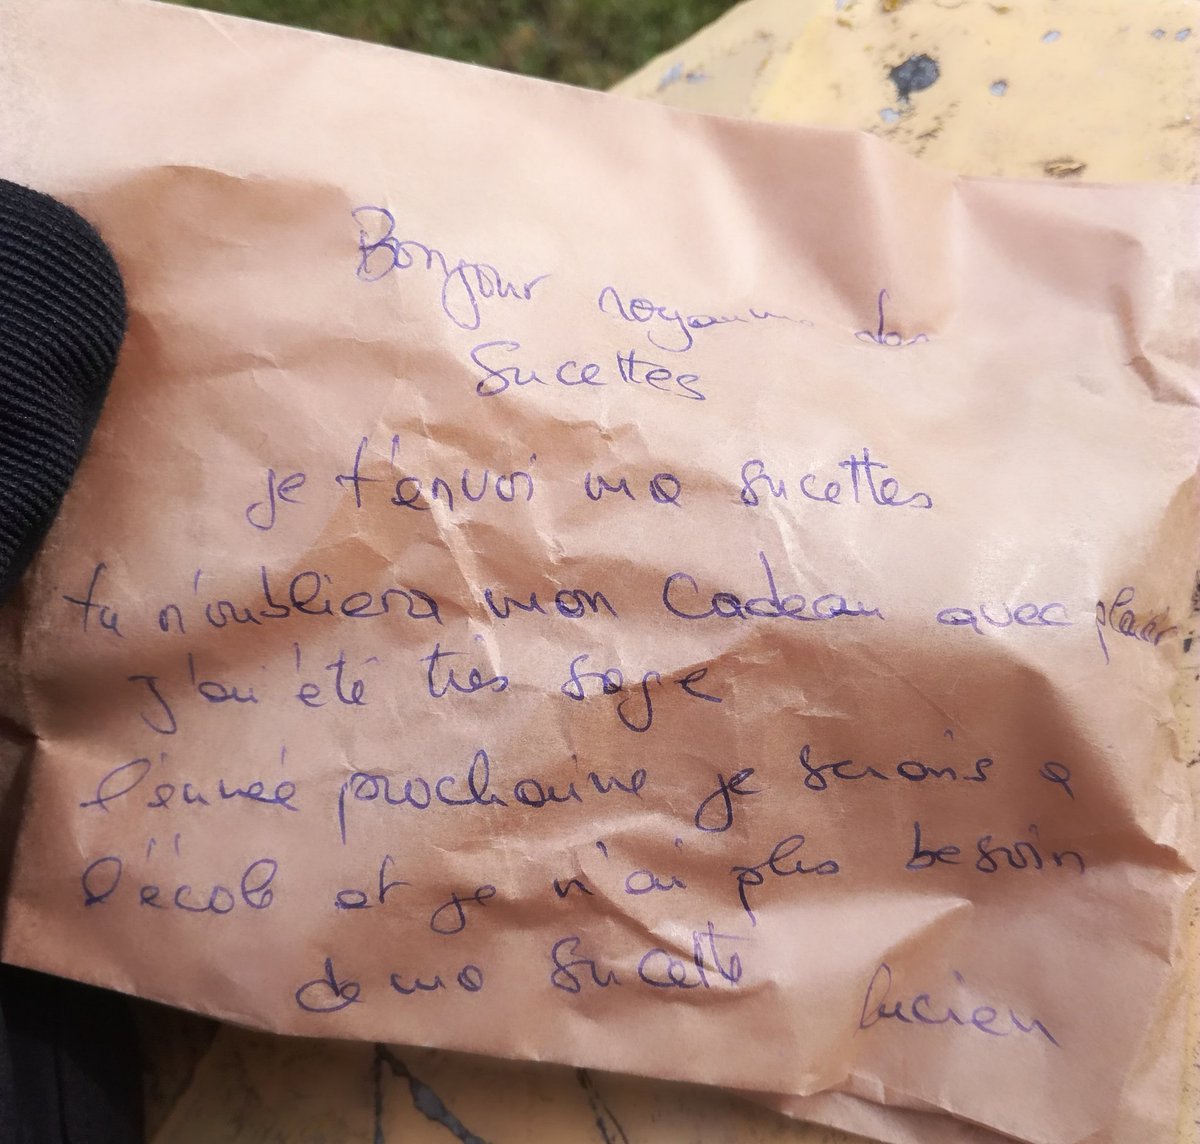 Bonjour royaume des
Sucettes
je t'envoi ma sucettes
tu n'oubliera mon Cadeau avec plaisir
j'ai été très sage
l'année prochaine je serais a
l'école et je n'ai plus besoin
de ma sucette
lucien